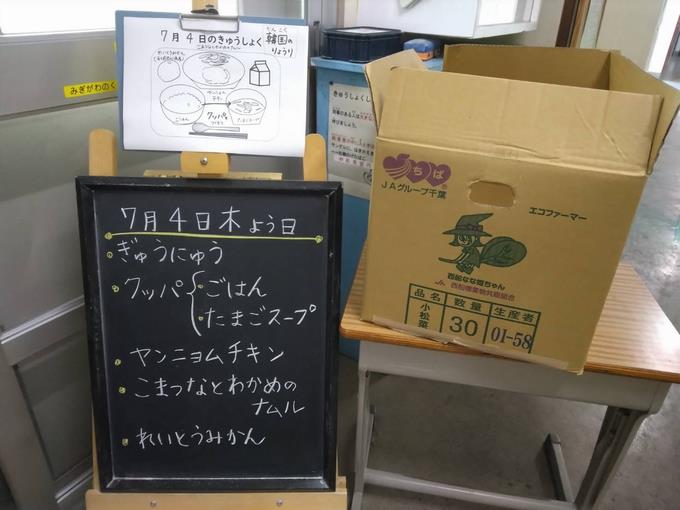 7月4日のきゅうしょく
かんこく
韓国の
りょうり
ヤンニョム
チキン
ごはん
クッパ
たまごスープ
みぎがわのく
7月4日木よう日
ぎゅうにゅう
クッパ ごはん
たまごスープ
ヤンニョムチキン
こまつなとわかめの
ナムル
れいとうみかん
きゅうしょくし
ちば
JAグループ千葉
エコファーマー
西船なな姫ちゃん
JA 西船橋葉物共販組合
品名 数量 生産者
小松菜 30 01-58